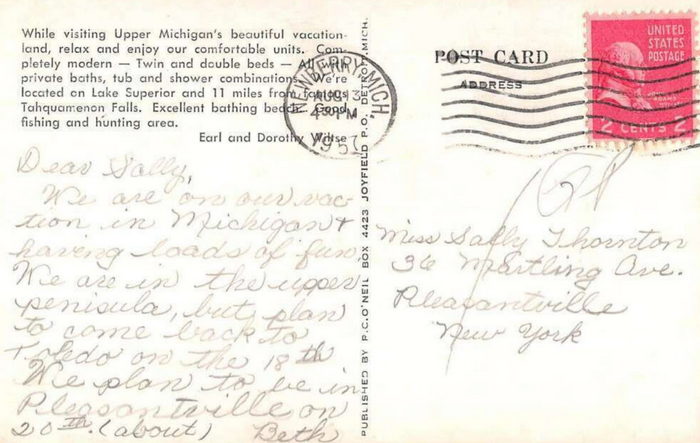 While visiting Upper Michigan's beautiful vacation-
land, relax and enjoy our comfortable units. Com-
pletely modern — Twin and double beds — All with
private baths, tub and shower combinations. We're
located on Lake Superior and 11 miles from famous
Tahquamenon Falls. Excellent bathing beach. Good
fishing and hunting area.
Earl and Dorothy Wiltse
NEWBERRY, MICH.
AUG 13
4 30 PM
1957
POST CARD
ADDRESS
UNITED
STATES
POSTAGE
JOHN
ADAMS
2 CENTS 2
Dear Sally,
We are on our vac-
tion in Michigan &
having loads of fun.
We are in the upper
penisula, but plan
to come back to
Toledo on the 18th
We plan to be in
Pleasantville on
20th. (about) Beth
PUBLISHED BY P.C. O'NEIL BOX 4423 JOYFIELD P.O. DETROIT, MICH.
Miss Sally Thornton
36 Martling Ave.
Pleasantville
New York